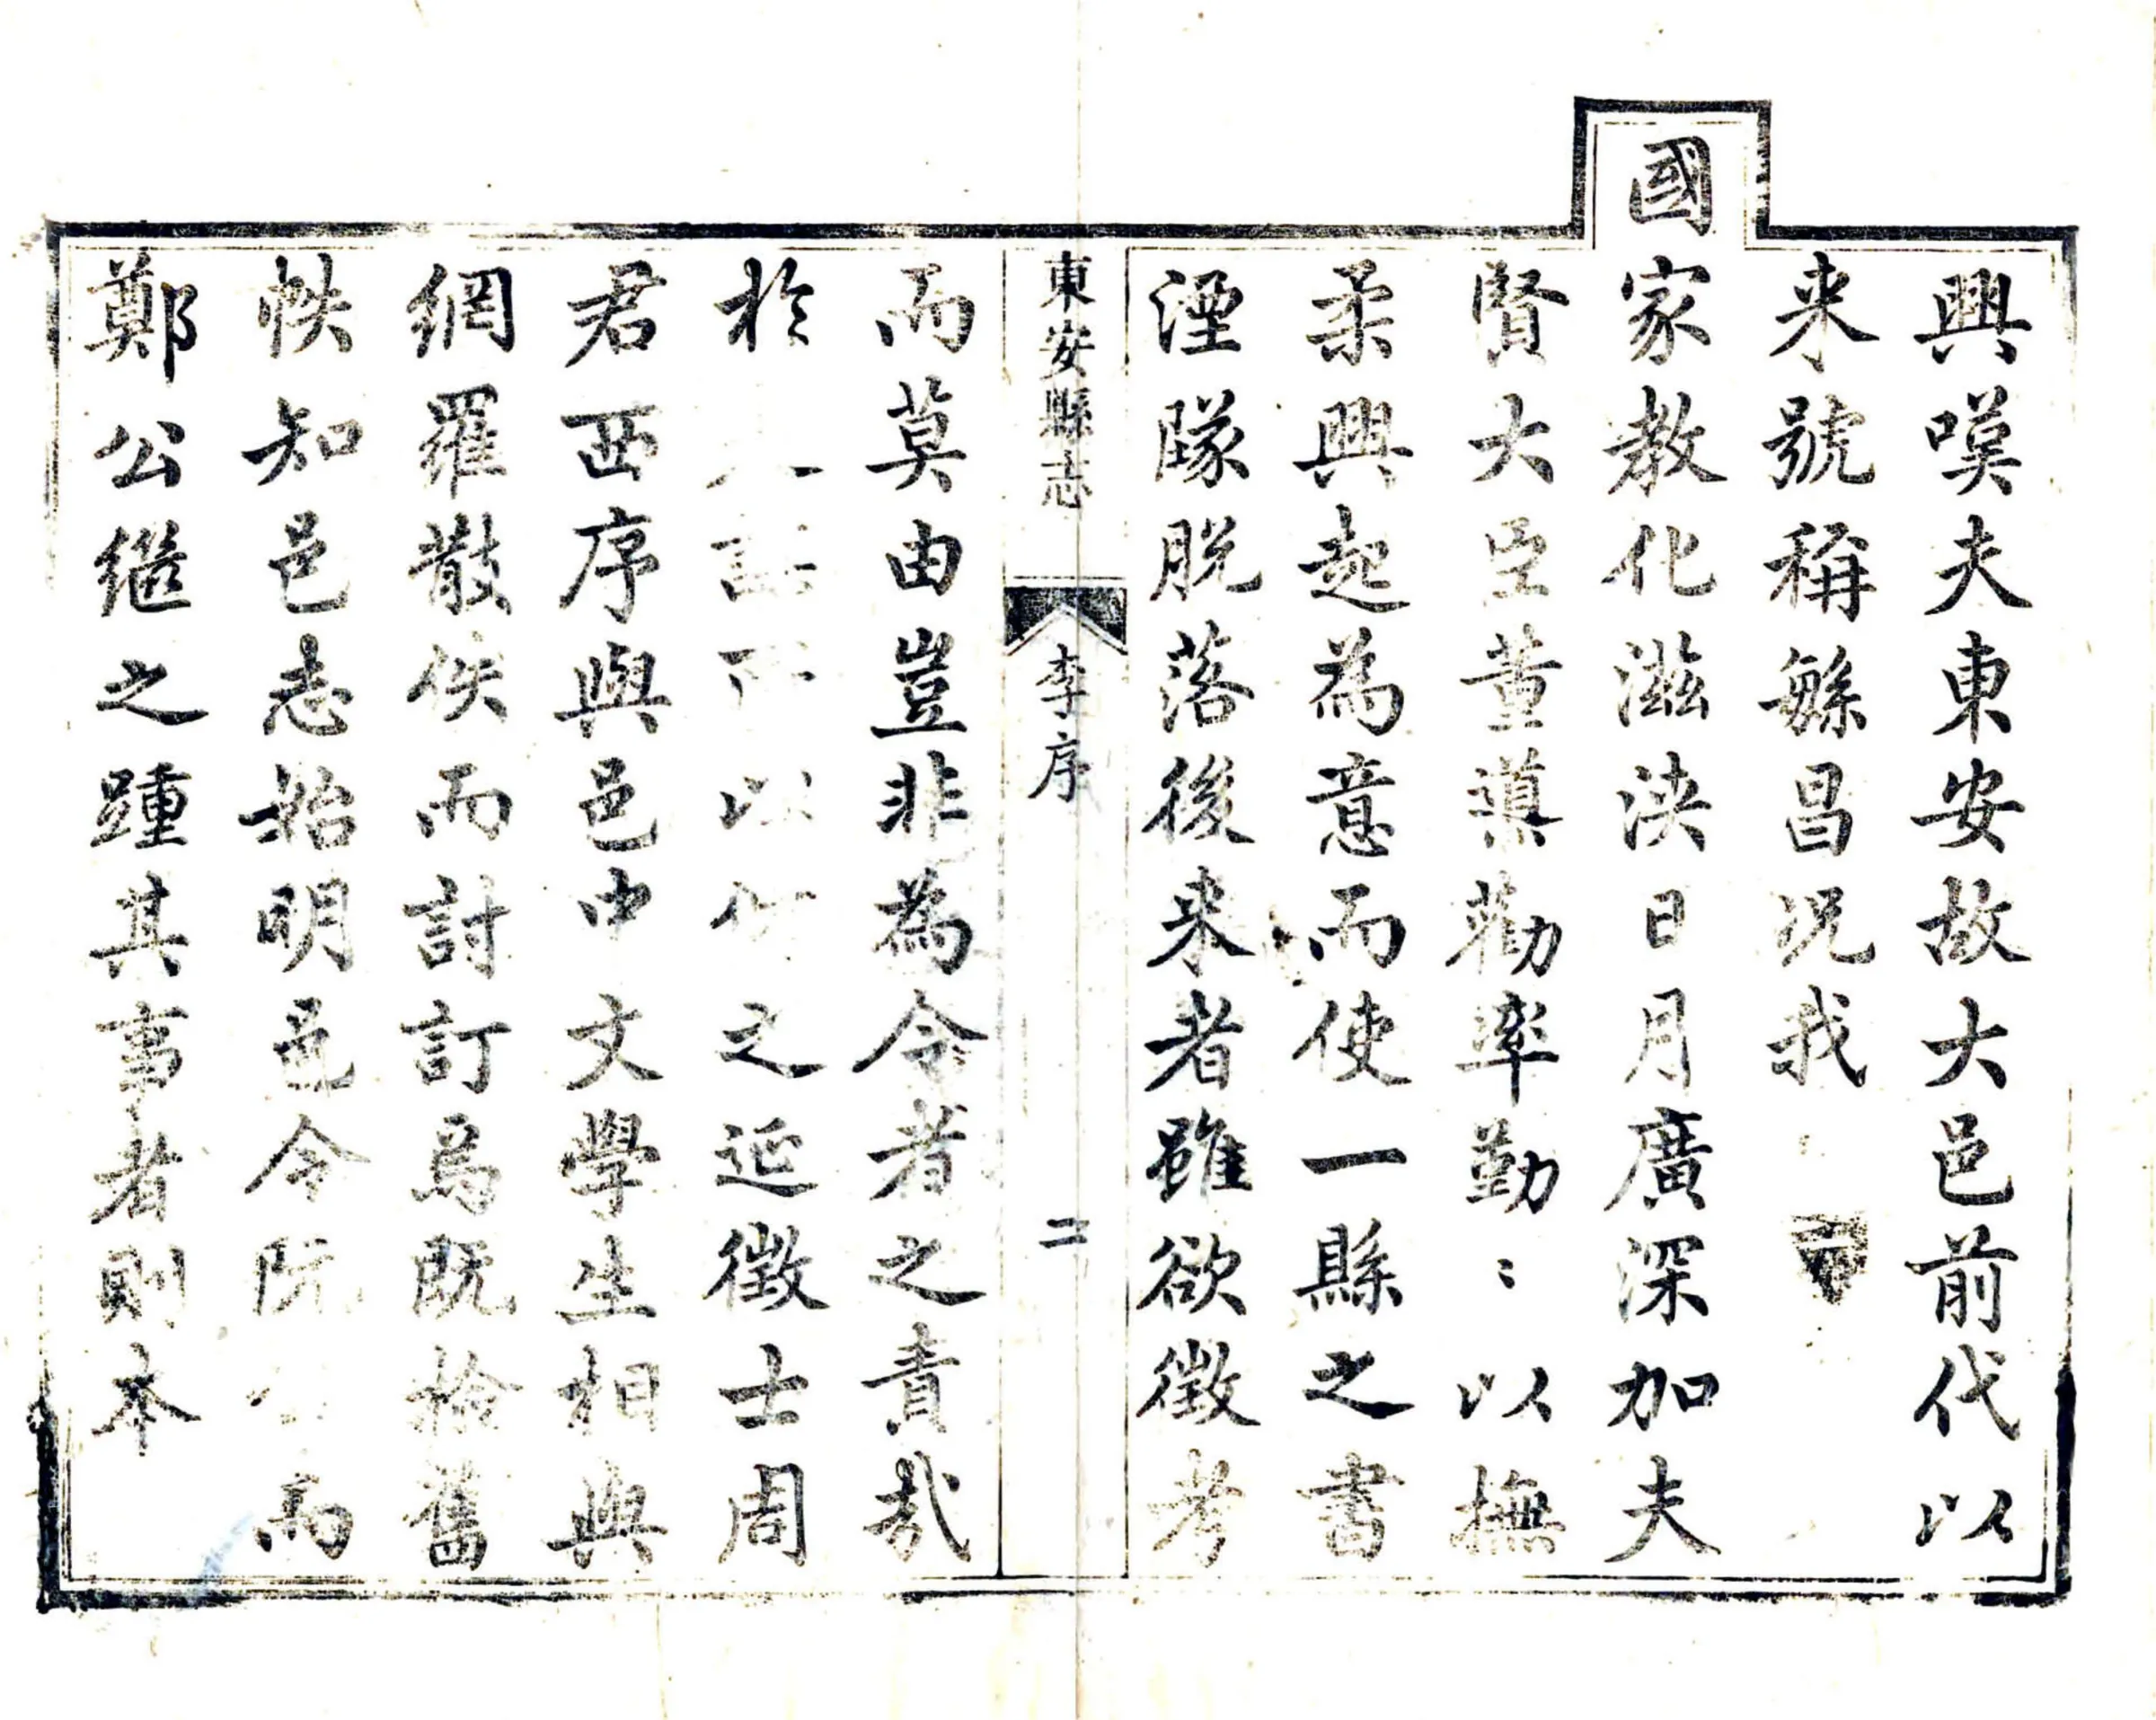 興嘆夫東安故大邑前代以
来號稱繇昌況我
國家教化滋浃日月廣深加夫
賢大臣董導勸率勤〻以撫
柔興起為意而使一縣之書
湮隊脱落後来者雖欲徴考
東安縣志
李序
二
而莫由豈非為令者之責哉
於之延徴士周
君西序與邑中文學生相與
網羅散佚而討訂焉既檢舊
帙知邑志始明邑令阮禹
鄭公继之踵其事者則本